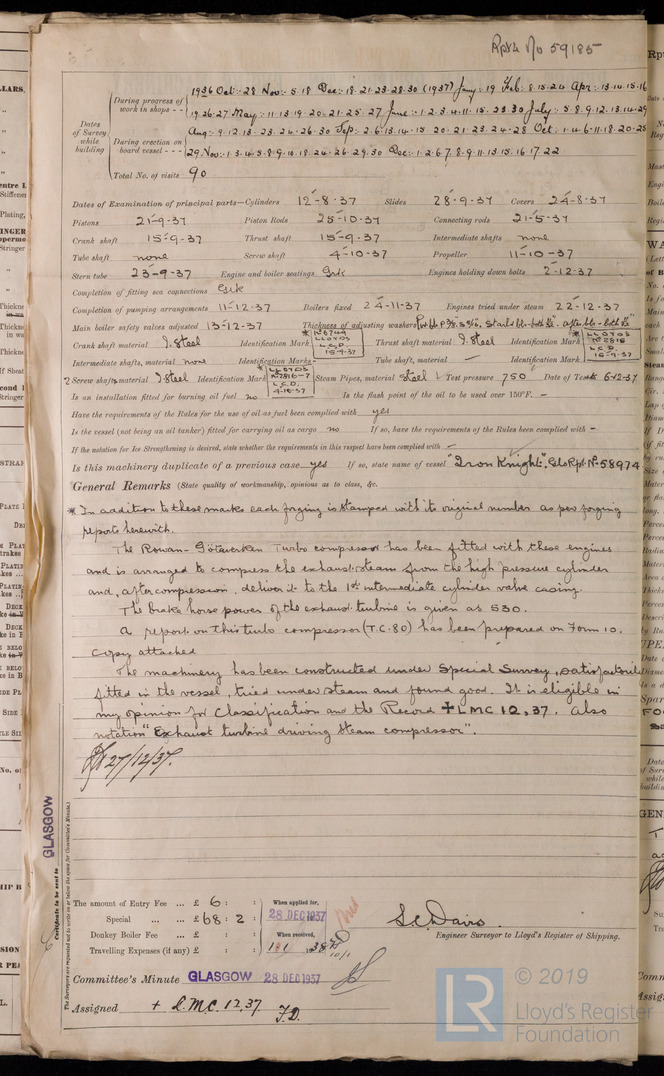 Rpt4 No 59185
Dates of Survey while building
During progress of work in shops - -
1936 Oct:- 28 Nov:- 5.18 Dec:- 18.21.23.28.30 (1937) Jany:- 19 Feb: 8.15.24 Apr:- 13.14.15.16
19.26.27 May:- 11.13.19.20.21.25.27 June:- 1.2.3.4.11.15.23.30 July:- 5.8.9.12.13.14.29
Aug:- 9.12.13.23.24.26.30 Sep:- 2.6.13.14.15 20.21.23.24.28 Oct: 1.4.6.11.18.20.25
During erection on board vessel - - -
29. Nov:- 1.3.4.5.8.9.10.18.24.26.29.30 Dec:- 1.2.6.7.8.9.11.13.15.16.17.22
Total No. of visits 90
Dates of Examination of principal parts—Cylinders 12-8-37 Slides 28-9-37 Covers 24-8-37
Pistons 21-9-37 Piston Rods 25-10-37 Connecting rods 21-5-37
Crank shaft 15-9-37 Thrust shaft 15-9-37 Intermediate shafts none
Tube shaft none Screw shaft 4-10-37 Propeller 11-10-37
Stern tube 23-9-37 Engine and boiler seatings Gsk Engines holding down bolts 2-12-37
Completion of fitting sea connections Gsk
Completion of pumping arrangements 11-12-37 Boilers fixed 24-11-37 Engines tried under steam 22-12-37
Main boiler safety valves adjusted 13-12-37 Thickness of adjusting washers
Crank shaft material I. Steel Identification Mark * No 6744 LLOYDS L.C.D. 15-9-37 Thrust shaft material I. Steel Identification Mark * LLOYDS No 2815 L.C.D. 15-9-37
Intermediate shafts, material none Identification Marks - Tube shaft, material - Identification Mark -
2 Screw shafts, material I. Steel Identification Mark * LLOYDS No 2816-7 L.C.D. 4-10-37 Steam Pipes, material Steel Test pressure 750 Date of Test 6-12-37
Is an installation fitted for burning oil fuel no Is the flash point of the oil to be used over 150°F. -
Have the requirements of the Rules for the use of oil as fuel been complied with yes
Is the vessel (not being an oil tanker) fitted for carrying oil as cargo no If so, have the requirements of the Rules been complied with -
If the notation for Ice Strengthening is desired, state whether the requirements in this respect have been complied with -
Is this machinery duplicate of a previous case yes If so, state name of vessel "Iron Knight". Gls Rpt. No. 58974
General Remarks (State quality of workmanship, opinions as to class, &c.
* In addition to these marks each forging is stamped with its original number as per forging
reports herewith.
The Rowan-Götaverken Turbo compressor has been fitted with these engines
and is arranged to compress the exhaust steam from the high pressure cylinder
and, after compression, deliver it to the 1st intermediate cylinder valve casing.
The brake horse power of the exhaust turbine is given as 530.
A report on this turbo compressor (T.C.80) has been prepared on Form 10.
Copy attached
The machinery has been constructed under Special Survey, satisfactorily
fitted in the vessel, tried under steam and found good. It is eligible in
my opinion for Classification and the Record + LMC 12,37. Also
notation "Exhaust turbine driving steam compressor".
27/12/37.
GLASGOW
Certificate to be sent to
The Surveyors are requested not to write on or below the space for Committee's Minute.
The amount of Entry Fee ... £ 6 : :
Special ... ... £ 68 : 2 :
Donkey Boiler Fee ... £ : :
Travelling Expenses (if any) £ : :
When applied for,
28 DEC 1937
When received,
10/1
S.C. Davis.
Engineer Surveyor to Lloyd's Register of Shipping.
Committee's Minute GLASGOW 28 DEC 1937
Assigned + LMC. 12,37
F.D.
LR
© 2019
Lloyd's Register
Foundation